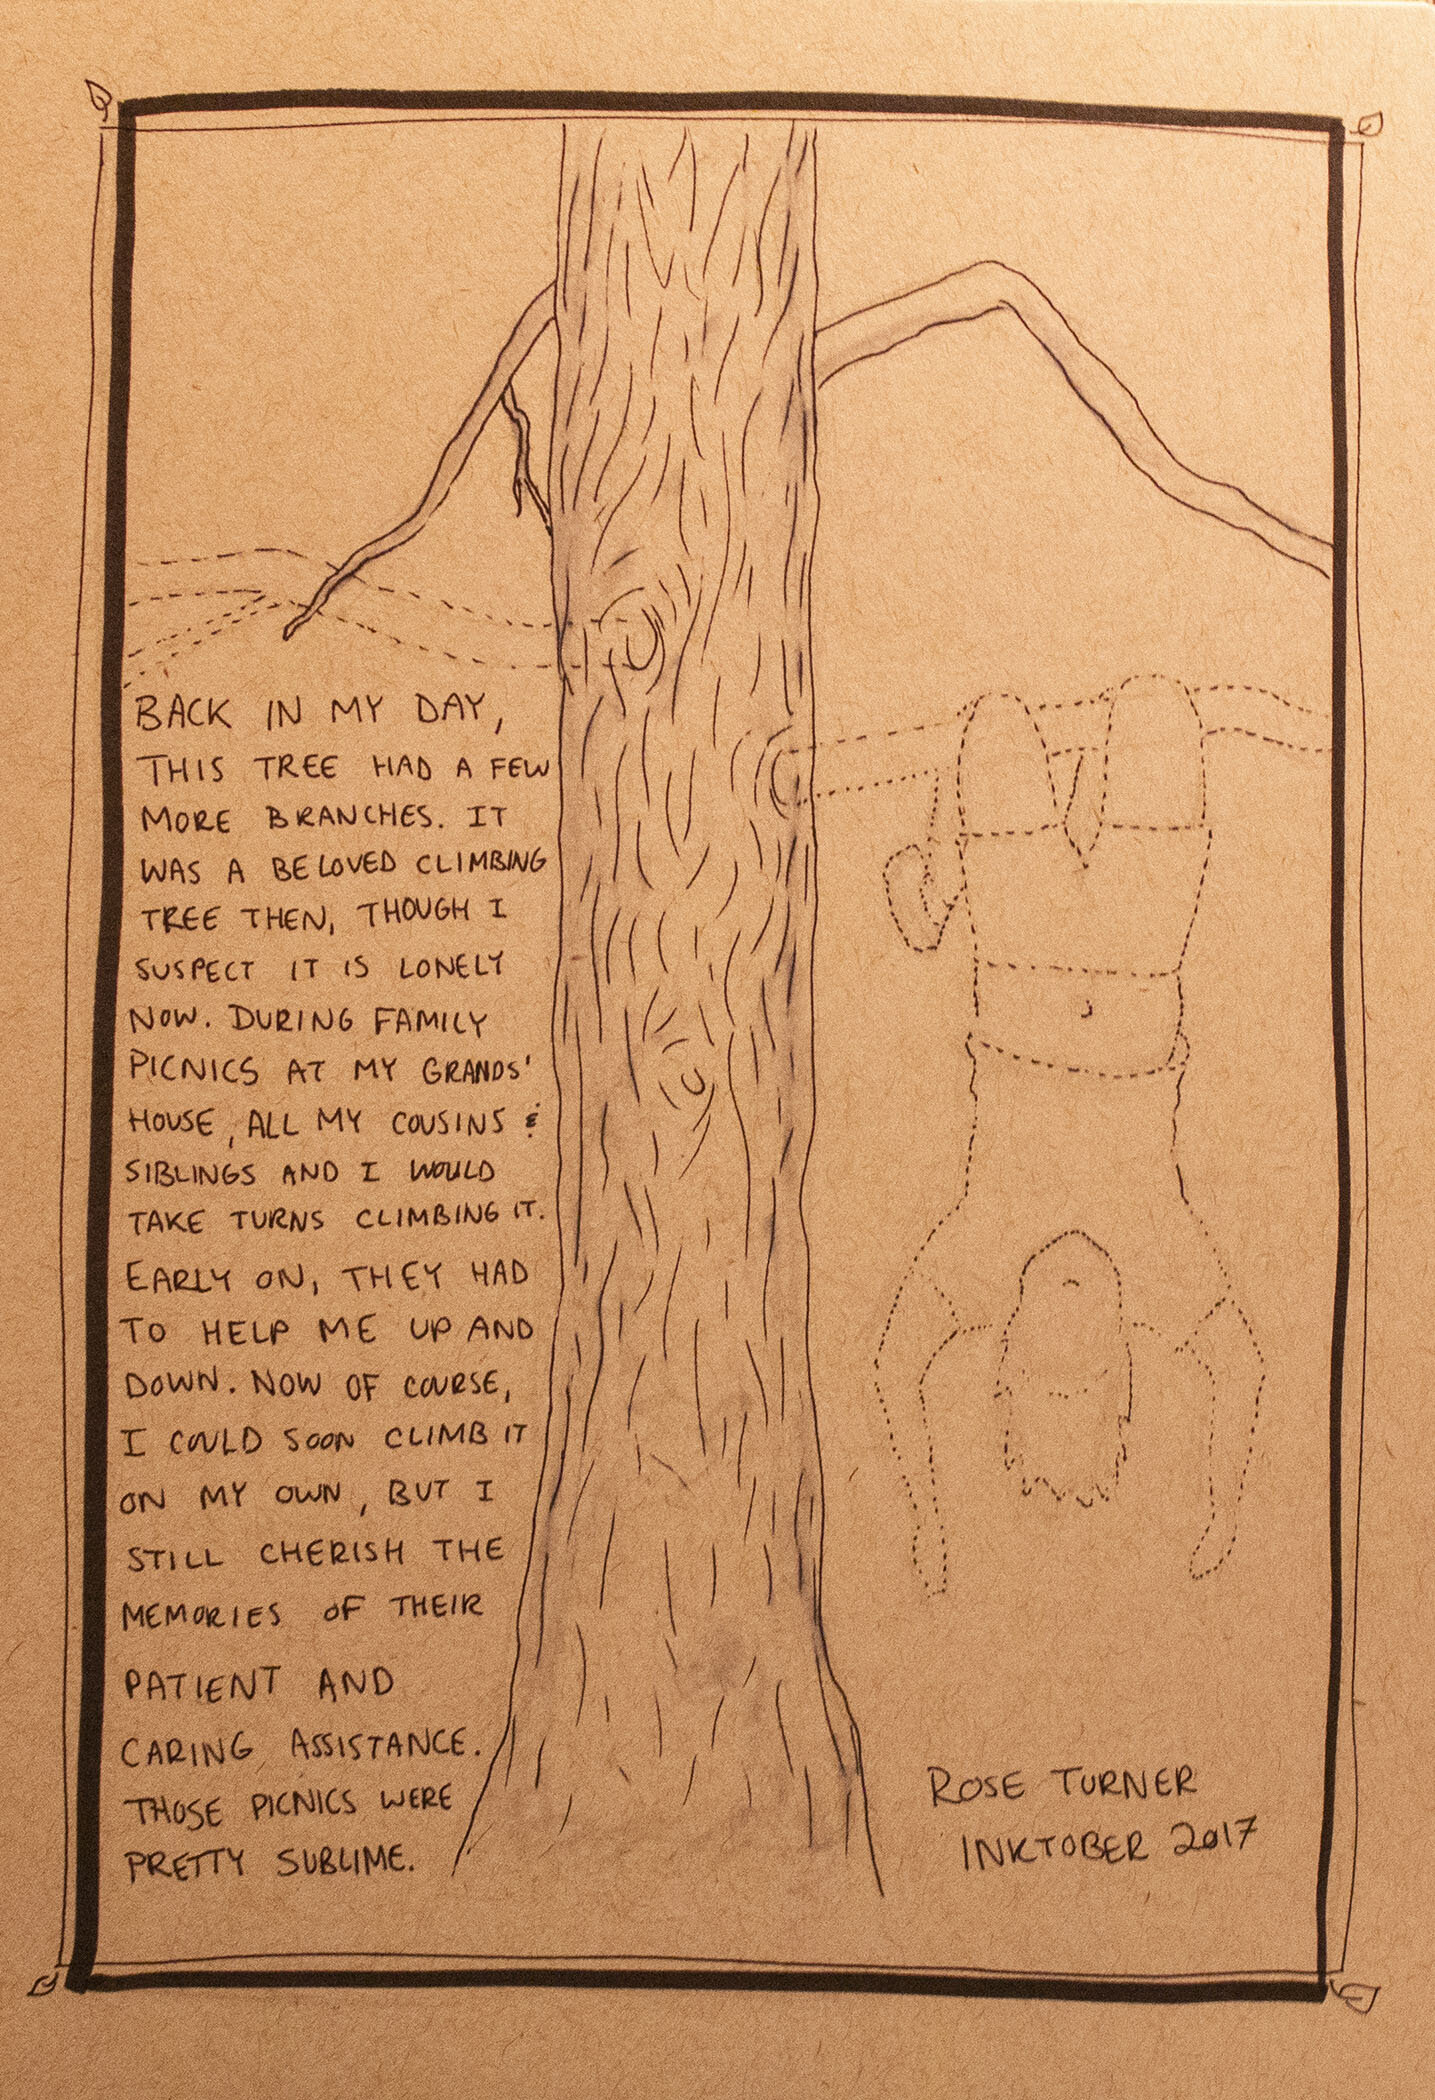 BACK IN MY DAY,
THIS TREE HAD A FEW
MORE BRANCHES. IT
WAS A BELOVED CLIMBING
TREE THEN, THOUGH I
SUSPECT IT IS LONELY
NOW. DURING FAMILY
PICNICS AT MY GRANDS'
HOUSE, ALL MY COUSINS &
SIBLINGS AND I WOULD
TAKE TURNS CLIMBING IT.
EARLY ON, THEY HAD
TO HELP ME UP AND
DOWN. NOW OF COURSE,
I COULD SOON CLIMB IT
ON MY OWN, BUT I
STILL CHERISH THE
MEMORIES OF THEIR
PATIENT AND
CARING ASSISTANCE.
THOSE PICNICS WERE
PRETTY SUBLIME.
ROSE TURNER
INKTOBER 2017